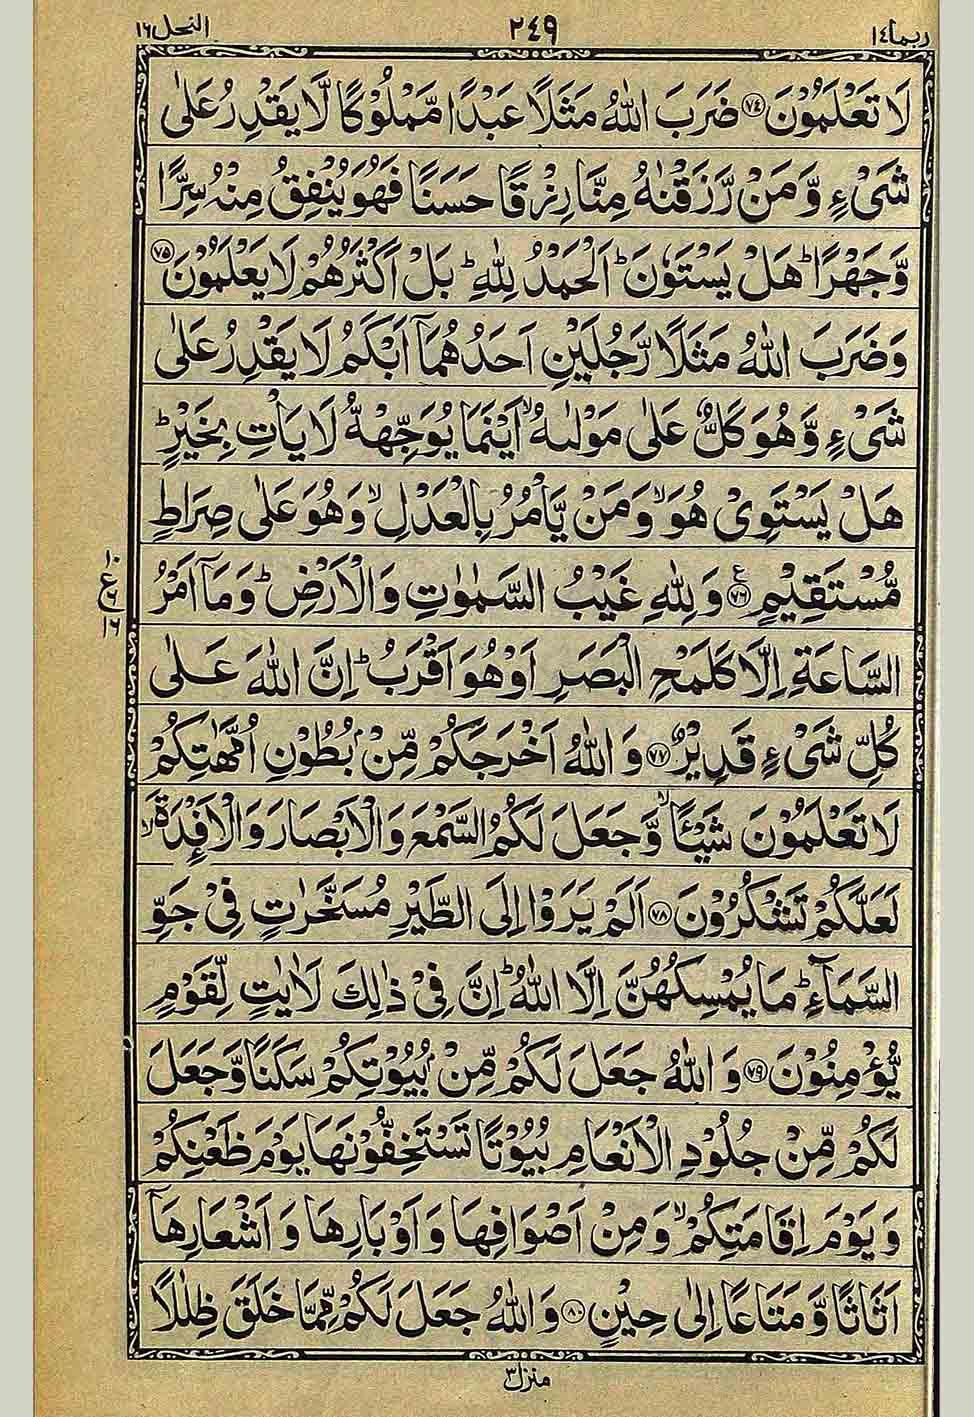 ربما١٤ ٢٤٩ النحل١٦
لَا تَعْلَمُوْنَ ﴿٧٤﴾ ضَرَبَ اللّٰهُ مَثَلًا عَبْدًا مَّمْلُوْكًا لَّا يَقْدِرُ عَلٰى
شَیْءٍ وَّ مَنْ رَّزَقْنٰهُ مِنَّا رِزْقًا حَسَنًا فَهُوَ يُنْفِقُ مِنْهُ سِرًّا
وَّ جَهْرًا ؕ هَلْ يَسْتَوٗنَ ؕ اَلْحَمْدُ لِلّٰهِ ؕ بَلْ اَكْثَرُهُمْ لَا يَعْلَمُوْنَ ﴿٧٥﴾
وَ ضَرَبَ اللّٰهُ مَثَلًا رَّجُلَيْنِ اَحَدُهُمَاۤ اَبْكَمُ لَا يَقْدِرُ عَلٰى
شَیْءٍ وَّ هُوَ كَلٌّ عَلٰى مَوْلٰىهُ ۙ اَيْنَمَا يُوَجِّهْهُّ لَا يَاْتِ بِخَيْرٍ ؕ
هَلْ يَسْتَوِیْ هُوَ ۙ وَ مَنْ يَّاْمُرُ بِالْعَدْلِ ۙ وَ هُوَ عَلٰى صِرَاطٍ
مُّسْتَقِيْمٍ ﴿٧٦﴾ ع وَ لِلّٰهِ غَيْبُ السَّمٰوٰتِ وَ الْاَرْضِ ؕ وَ مَاۤ اَمْرُ
١٠
ع
٦
١٦
السَّاعَةِ اِلَّا كَلَمْحِ الْبَصَرِ اَوْ هُوَ اَقْرَبُ ؕ اِنَّ اللّٰهَ عَلٰى
كُلِّ شَیْءٍ قَدِيْرٌ ﴿٧٧﴾ وَ اللّٰهُ اَخْرَجَكُمْ مِّنْۢ بُطُوْنِ اُمَّهٰتِكُمْ
لَا تَعْلَمُوْنَ شَيْـًٔا ۙ وَّ جَعَلَ لَكُمُ السَّمْعَ وَ الْاَبْصَارَ وَ الْاَفْـِٕدَةَ ۙ
لَعَلَّكُمْ تَشْكُرُوْنَ ﴿٧٨﴾ اَلَمْ يَرَوْا اِلَى الطَّيْرِ مُسَخَّرٰتٍ فِیْ جَوِّ
السَّمَآءِ ؕ مَا يُمْسِكُهُنَّ اِلَّا اللّٰهُ ؕ اِنَّ فِیْ ذٰلِكَ لَاٰيٰتٍ لِّقَوْمٍ
يُّؤْمِنُوْنَ ﴿٧٩﴾ وَ اللّٰهُ جَعَلَ لَكُمْ مِّنْۢ بُيُوْتِكُمْ سَكَنًا وَّ جَعَلَ
لَكُمْ مِّنْ جُلُوْدِ الْاَنْعَامِ بُيُوْتًا تَسْتَخِفُّوْنَهَا يَوْمَ ظَعْنِكُمْ
وَ يَوْمَ اِقَامَتِكُمْ ۙ وَ مِنْ اَصْوَافِهَا وَ اَوْبَارِهَا وَ اَشْعَارِهَاۤ
اَثَاثًا وَّ مَتَاعًا اِلٰى حِيْنٍ ﴿٨٠﴾ وَ اللّٰهُ جَعَلَ لَكُمْ مِّمَّا خَلَقَ ظِلٰلًا
منزل٣